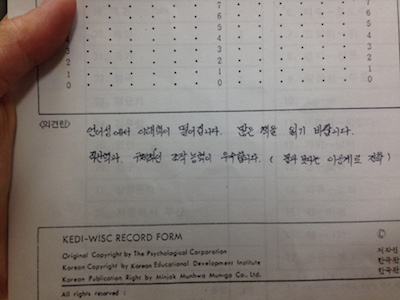 7
6
5
4
3 3
2 2
1 1
0 0
〈의견란〉
언어성에서 이해력이 떨어집니다. 많은 책을 읽기 바랍니다.
구체적인 조작 능력이 우수합니다. (
KEDI-WISC RECORD FORM ©
Original Copyright by The Psychological Corporation
Korean Copyright by Korean Educational Development Institute
Korean Publication Right by Minjok Munhwa Mungo Co., Ltd.
All rights reserved :
저작자
한국판
한국판